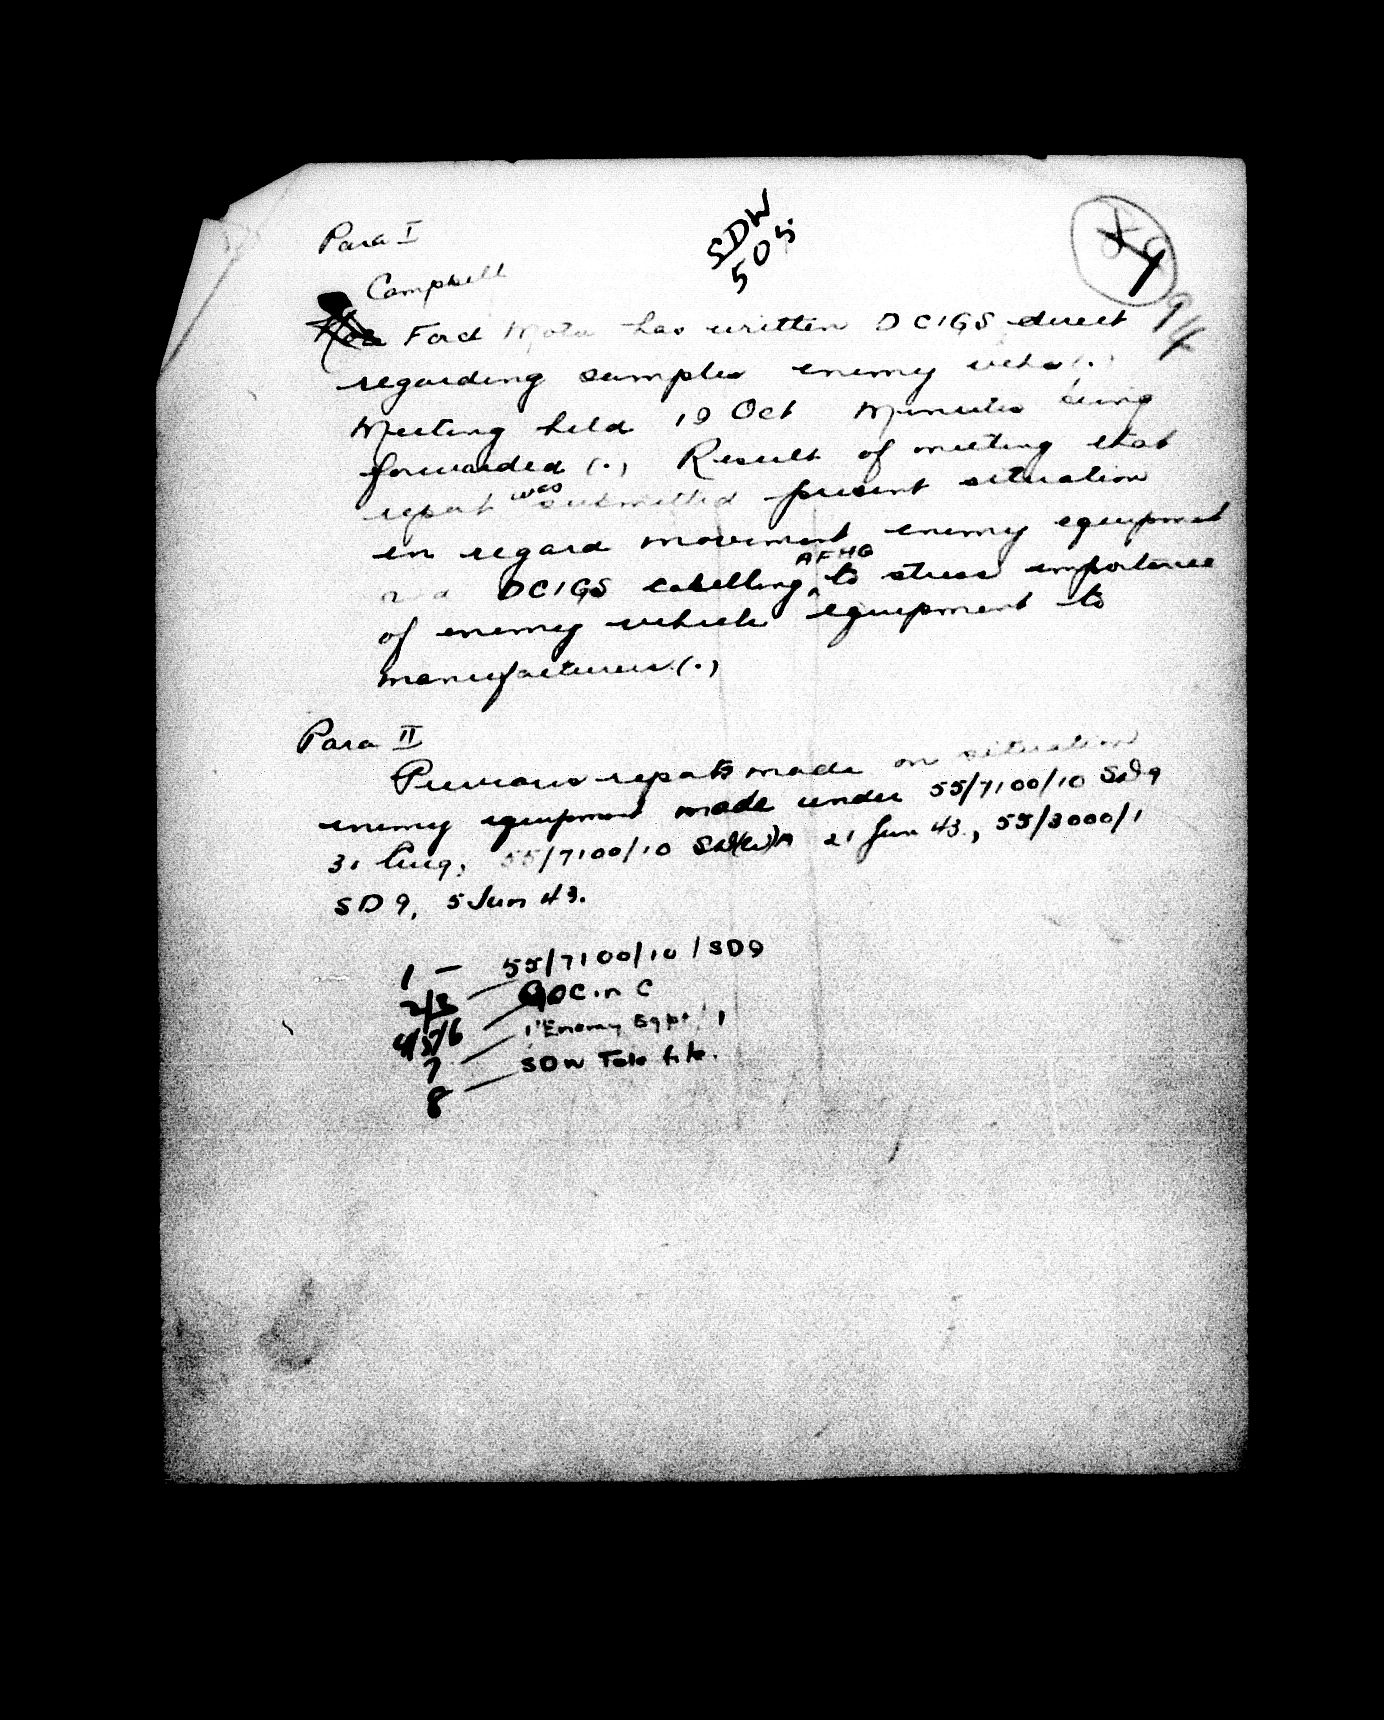 SDW
505
Para I
Campbell
Ford Motor has written DCIGS direct
regarding samples enemy vehs (.)
Meeting held 19 Oct Minutes being
forwarded (.) Result of meeting that
report was submitted present situation
in regard movement enemy equipment
DCIGS cabelling AFHQ to stress importance
of enemy vehicle equipment to
manufacturers (.)
Para II
Previous reports made on situation
enemy equipment made under 55/7100/10 SD9
31 Aug, 55/7100/10 SD(W)A 21 Jun 43, 55/3000/1
SD 9, 5 Jun 43.
1 — 55/7100/10 / SD9
2/3 — GOC in C
4/5/6 — "Enemy Eqpt" 1
7 — SDW Tele file.
8